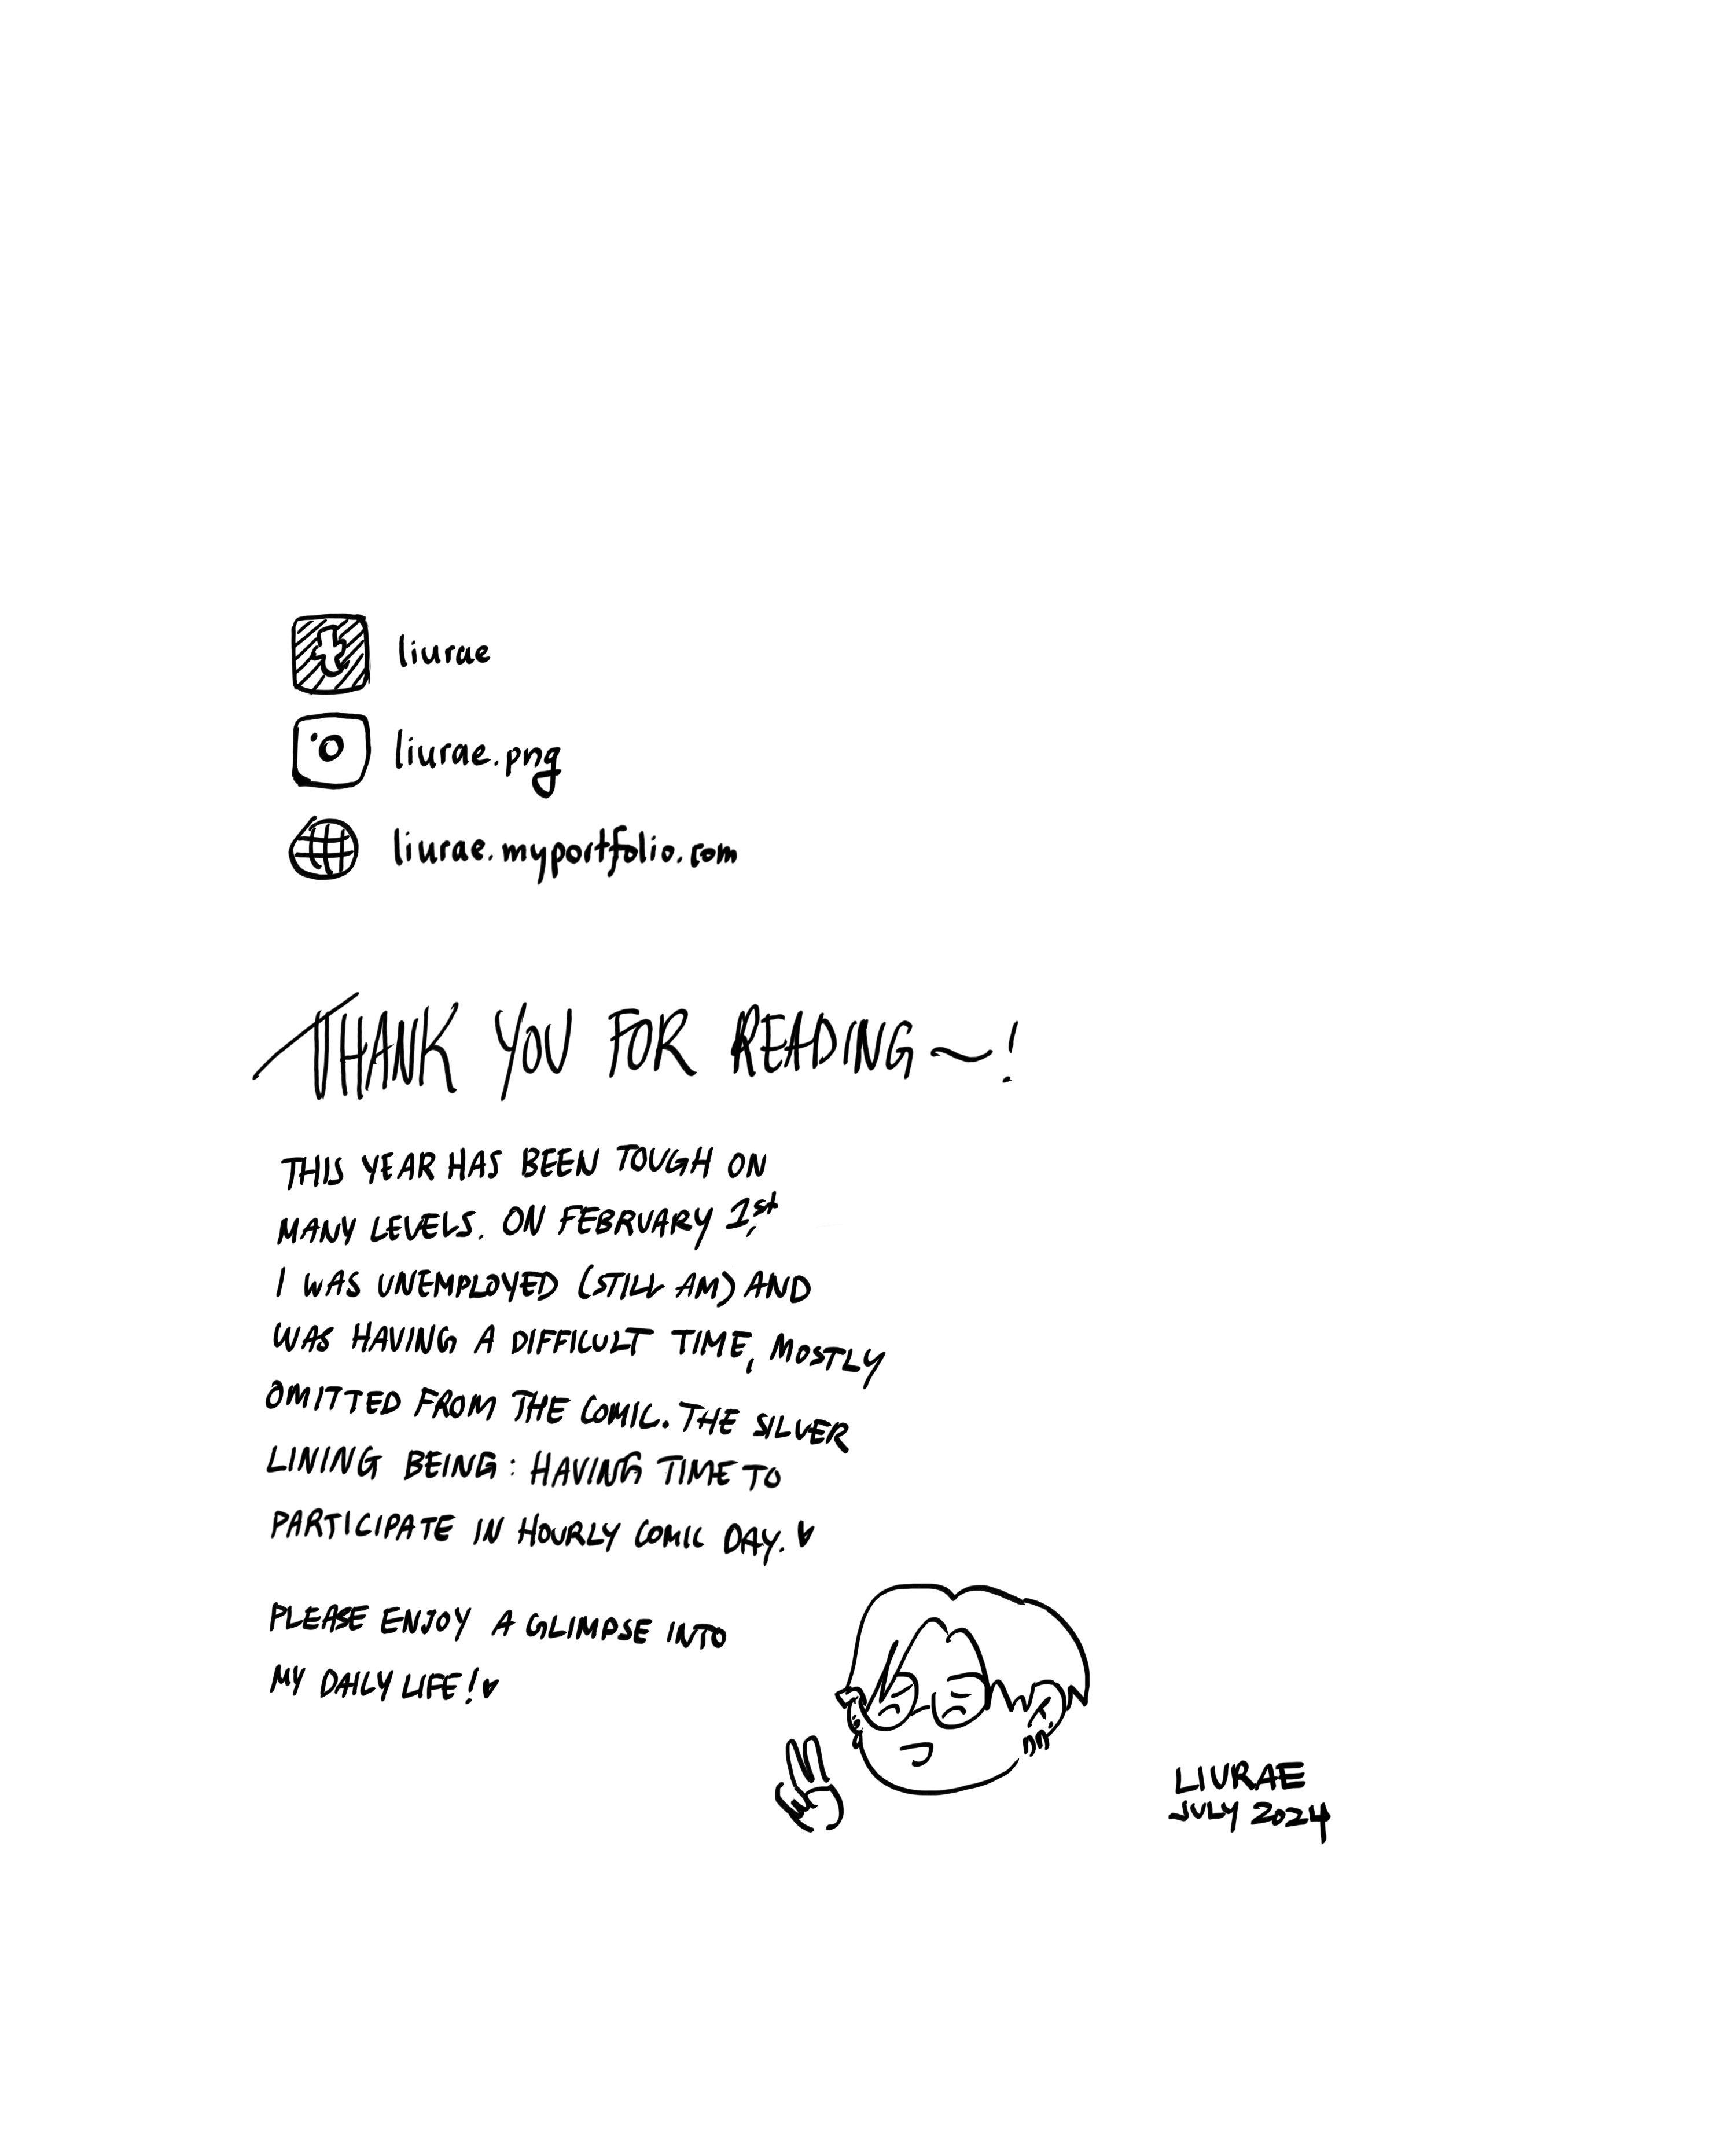 liurae
liurae.png
liurae.myportfolio.com
THANK YOU FOR READING~!
THIS YEAR HAS BEEN TOUGH ON
MANY LEVELS. ON FEBRUARY 1st
I WAS UNEMPLOYED (STILL AM) AND
WAS HAVING A DIFFICULT TIME, MOSTLY
OMITTED FROM THE COMIC. THE SILVER
LINING BEING: HAVING TIME TO
PARTICIPATE IN HOURLY COMIC DAY. ♥
PLEASE ENJOY A GLIMPSE INTO
MY DAILY LIFE! ♥
LIURAE
JULY 2024